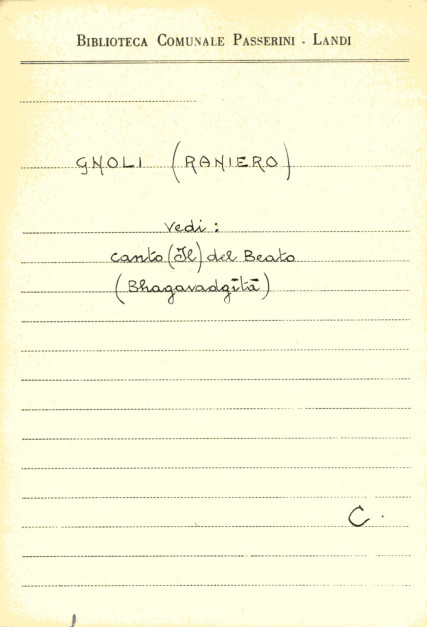 BIBLIOTECA COMUNALE PASSERINI - LANDI
GNOLI (RANIERO)
Vedi:
Canto (Il) del Beato
(Bhagavadgītā)
C.